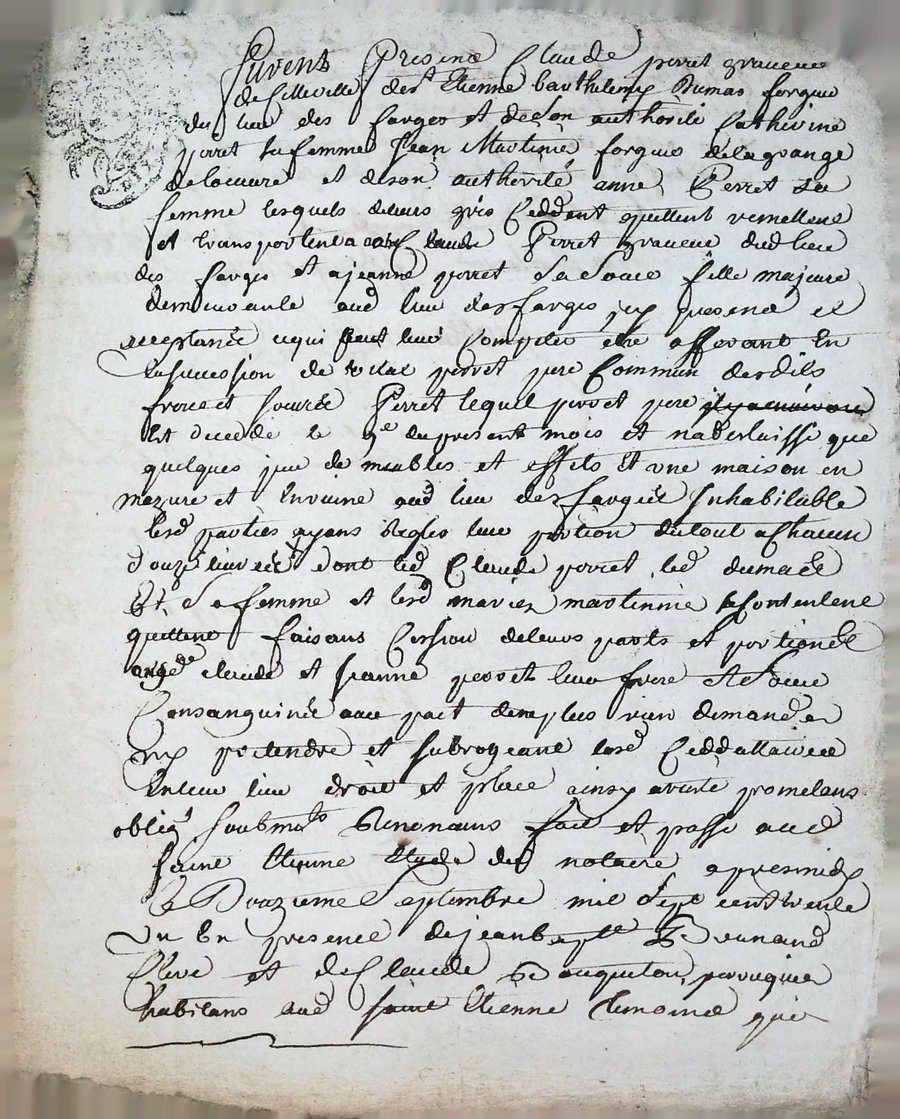 furent presens Claude perret graveur
de cette ville de st Etienne barthelemy Dumas forgeur
du lieu des farges et de son authorité Catherine
perret sa femme Jean Martinie forgeur de la grange
de loeuvre et de son authorité anne Perret sa
femme lesquels de leurs grés Ceddent quittent remettent
et transportent a Claude Perret graveur dud lieu
des farges et a jeanne perret sa soeur fille majeure
demeurante aud lieu des farges icy presens et
acceptants ce qui peut leur Competer etre afferant En
la succession de vital perret pere Commun desdits
frere et soeurs Perret lequel perret pere
Est decedé le 9e du present mois et na delaissé que
quelques peu de meubles et effets Et une maison en
mazure et En ruine aud lieu des farges Inhabitable
lesd parties ayans Reglés leur portion du tout a Chacun
douze livres dont led Claude perret led dumas
Et sa femme et lesd mariés martinnie se Contentent
quittent faisans Cession de leurs parts et portions
aux de claude et jeanne perret leur frere et soeur
Consanguins avec pact de ne plus rien demander
ny pretendre et subrogeant lesd Ceddattaires
En leur lieu droit et place ainsy a esté promettans
oblig soubmis Renoncans fait et passé aud
saint Etienne Etude du notaire apres midy
le Douzieme Septembre mil sept cent trente
Un En presence de jean bapte Bernand
Clerc et de Claude perruquier
habitans aud saint Etienne temoins qui